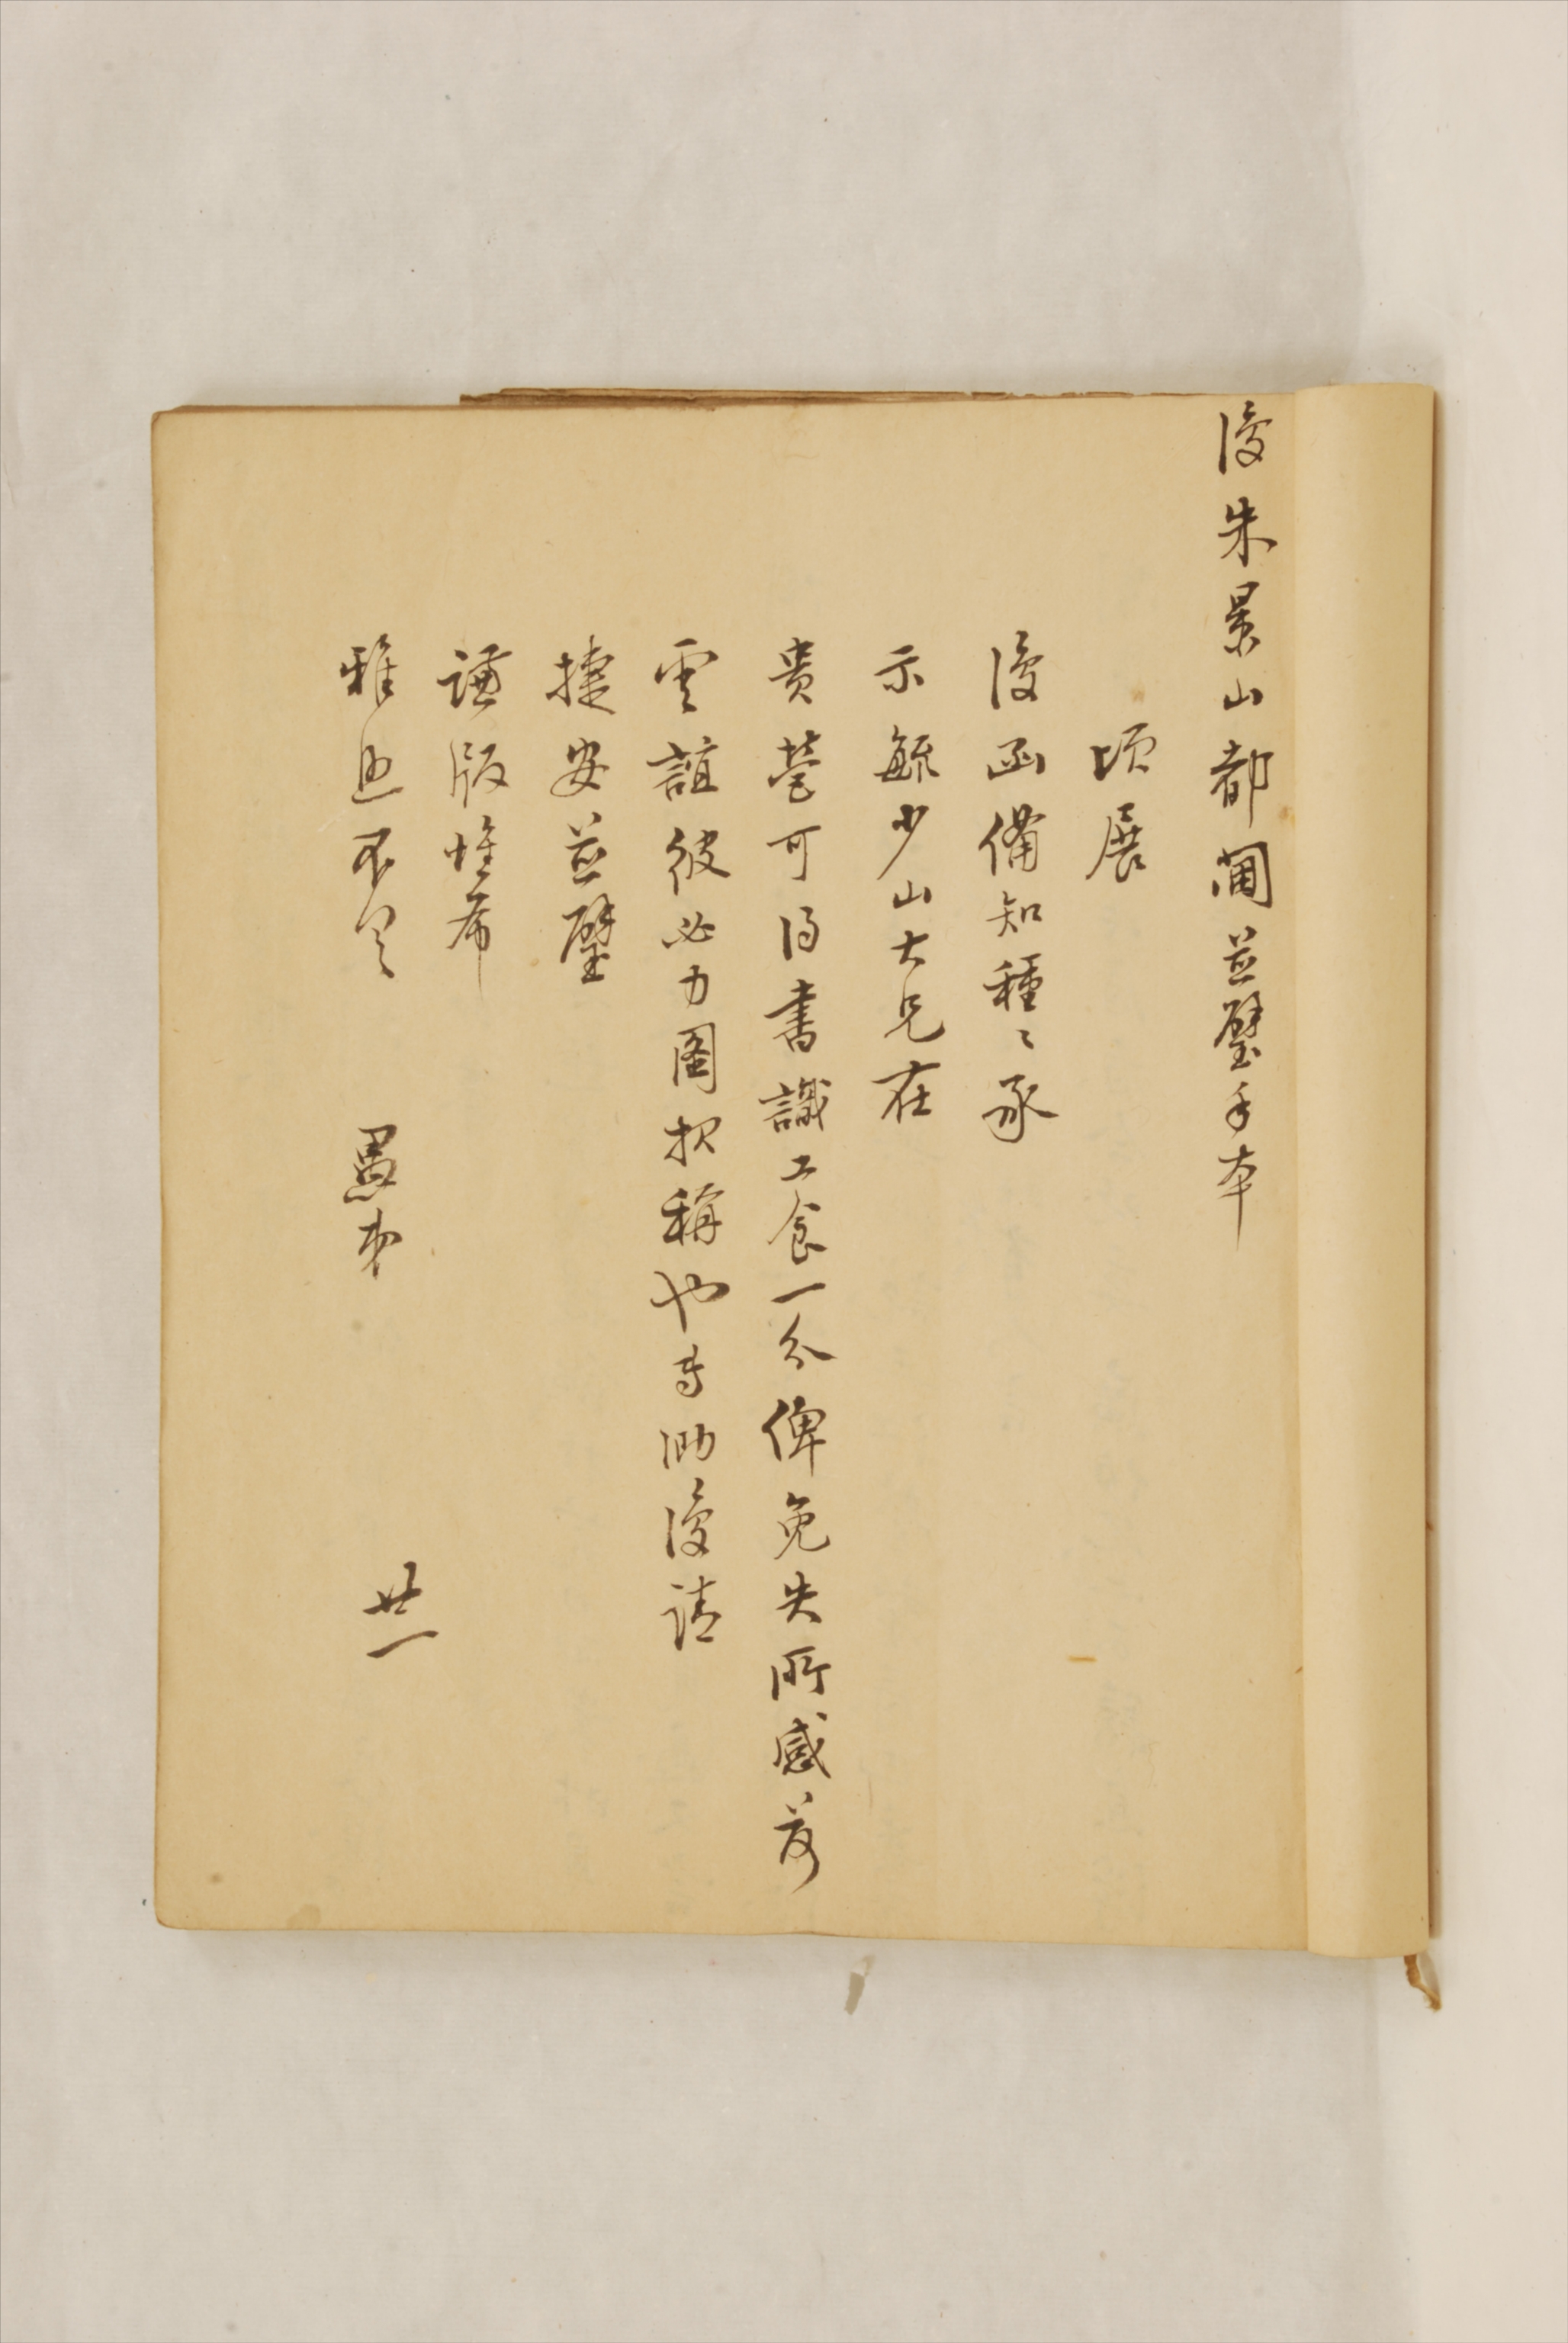 復朱景山都閫並璧手本
頃展
復函備知種〻承
示毓少山大兄在
貴營可得書識工食一分俾免失所感荷
雲誼彼必力圖报稱也專泐復請
捷安並璧
謙版惟希
雅照不具 愚弟 廿一